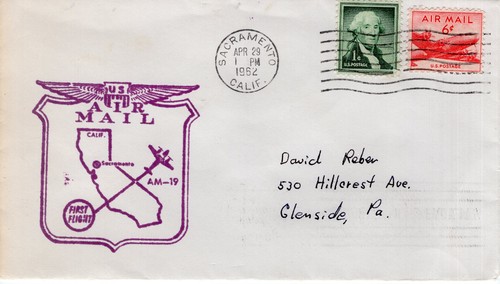 SACRAMENTO
APR 29
1 PM
1962
CALIF.
1¢
U.S. POSTAGE
AIR MAIL
6¢
U.S. POSTAGE
US
AIR
MAIL
CALIF.
Sacramento
AM-19
FIRST
FLIGHT
David Reber
530 Hillcrest Ave.
Glenside, Pa.